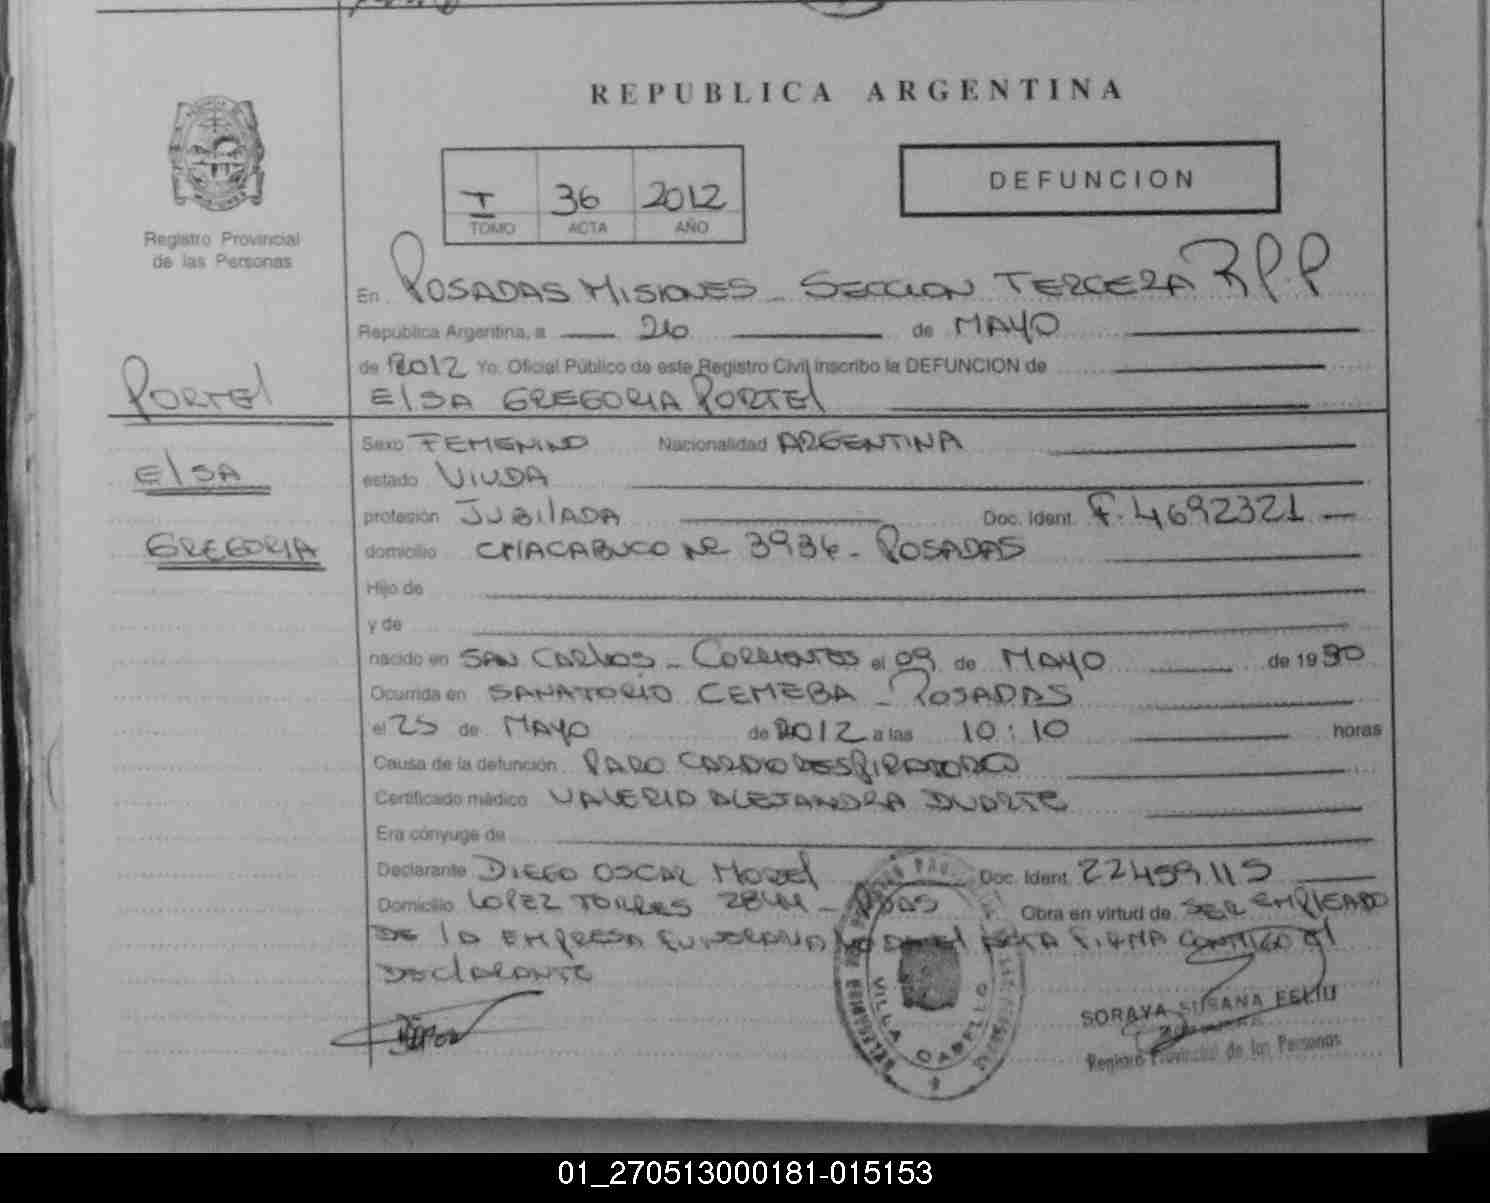 REPUBLICA ARGENTINA
I 36 2012
TOMO ACTA AÑO
DEFUNCION
Registro Provincial
de las Personas
En POSADAS MISIONES - SECCION TERCERA R.P.P
República Argentina, a 26 de MAYO
de 2012 Yo, Oficial Público de este Registro Civil inscribo la DEFUNCION de
PORTEL
ELSA GREGORIA PORTEL
Sexo FEMENINO Nacionalidad ARGENTINA
ELSA
estado VIUDA
profesión JUBILADA Doc. Ident. F. 4692321
GREGORIA
domicilio CHACABUCO Nº 3936 - POSADAS
Hijo de
y de
nacido en SAN CARLOS - CORRIENTES el 09 de MAYO de 19
Ocurrida en SANATORIO CEMEBA - POSADAS
el 25 de MAYO de 2012 a las 10:10 horas
Causa de la defunción PARO CARDIORESPIRATORIO
Certificado médico VALERIA ALEJANDRA DUARTE
Era cónyuge de
Declarante DIEGO OSCAR MOREL Doc. Ident. 22459115
Domicilio LOPEZ TORRES 2844 - PDAS Obra en virtud de SER EMPLEADO
DE LA EMPRESA FUNERARIA FIRMA CONMIGO El
DECLARANTE
VILLA CABELLO
SORAYA SUSANA
Registro Provincial de las Personas
01_270513000181-015153